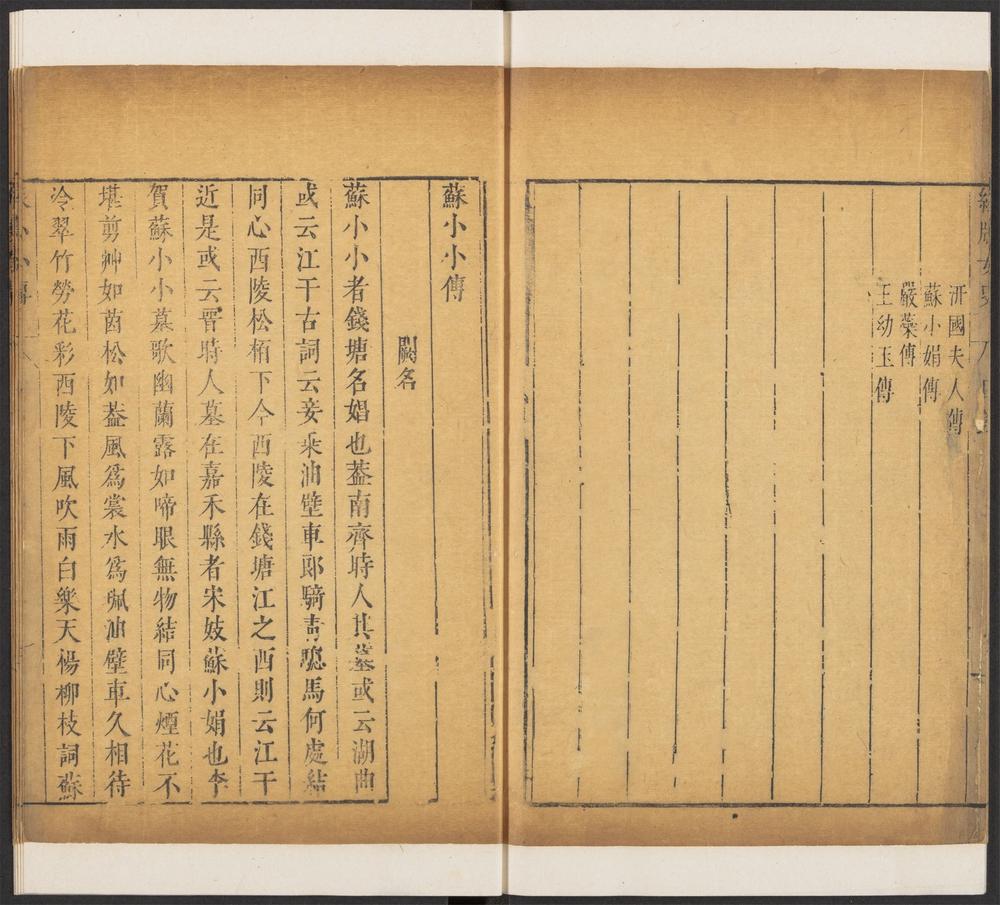 汧國夫人傳
蘇小娟傳
嚴蘂傳
王幼玉傳
蘇小小傳
闕名
蘇小小者錢塘名娼也葢南齊時人其墓或云湖曲
或云江干古詞云妾乘油壁車郎騎靑驄馬何處結
同心西陵松栢下今西陵在錢塘江之西則云江干
近是或云晋時人墓在嘉禾縣者宋妓蘇小娟也李
賀蘇小小墓歌幽蘭露如啼眼無物結同心煙花不
堪剪艸如茵松如葢風爲裳水爲珮油壁車久相待
冷翠竹勞花彩西陵下風吹雨白樂天楊柳枝詞蘇